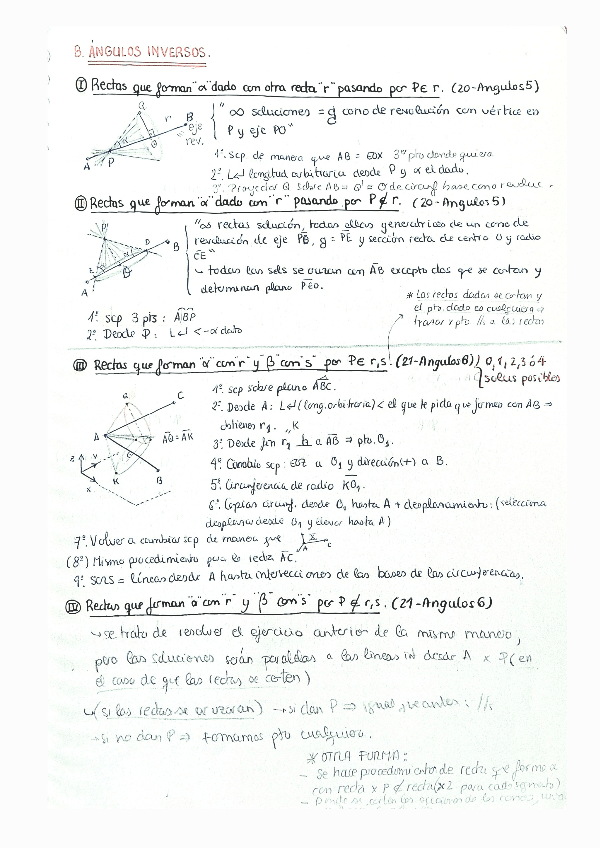 3. ÁNGULOS INVERSOS.
I Rectas que forman "α" dado con otra recta "r" pasando por P∈ r. (20-Angulos5)
Q
r
B
eje
rev.
A
P
"∞ soluciones = g cono de revolución con vértice en
P y eje PO"
1º. scp de manera que AB = eox 3er pto donde quiera
2º. L↵ longitud arbitraria desde P y α el dado.
3º. Proyectar Q sobre AB = Q' = O de circunf base cono revoluc.
II Rectas que forman "α" dado con "r" pasando por P ∉ r. (20-Angulos5)
P
D
B
E
O
A
"∞ rectas solución, todas ellas generatrices de un cono de
revolución de eje PB, g = PE y sección recta de centro O y radio
CE"
↳ todas las sols se cruzan con AB excepto dos que se cortan y
determinan plano PEO.
1º. scp 3 pts: ABP
2º. Desde P: L↵ < -α dato
* Las rectas dadas se cortan y
el pto. dado es cualquiera ⇒
trazar x pto // a las rectas
III Rectas que forman "α" con "r" y "β" con "s" por P∈ r,s. (21-Angulos6)
0, 1, 2, 3 ó 4
soluc posibles
Q
C
A
AQ = AK
K
B
z
y
x
1º. scp sobre plano ABC.
2º. Desde A: L↵ (long. arbitraria) < el que te pida que formes con AB ⇒
obtienes r1. "K
3º. Desde fin r1 h a AB ⇒ pto. O1.
4º. Cambio scp: eoz a O1 y dirección (+) a B.
5º. Circunferencia de radio KO1.
6º. Copias circunf. desde O1 hasta A + desplazamiento: (selecciona
desplazar desde O1 y llevar hasta A)
7º. Volver a cambiar scp de manera que
(8º) Mismo procedimiento para la recta AC.
9º. SOLS = líneas desde A hasta intersecciones de las bases de las circunferencias.
IV Rectas que forman "α" con "r" y "β" con "s" por P ∉ r,s. (21-Angulos6)
↳ se trata de resolver el ejercicio anterior de la misma manera,
pero las soluciones serán paralelas a las líneas in desde A x P (en
el caso de que las rectas se corten)
↳ (si las rectas se cruzaran) → si dan P ⇒ igual que antes: //s
→ si no dan P ⇒ tomamos pto cualquiera.
* OTRA FORMA:
- Se hace procedimiento de recta que forma α
con recta x P ∉ recta (x2 para cada